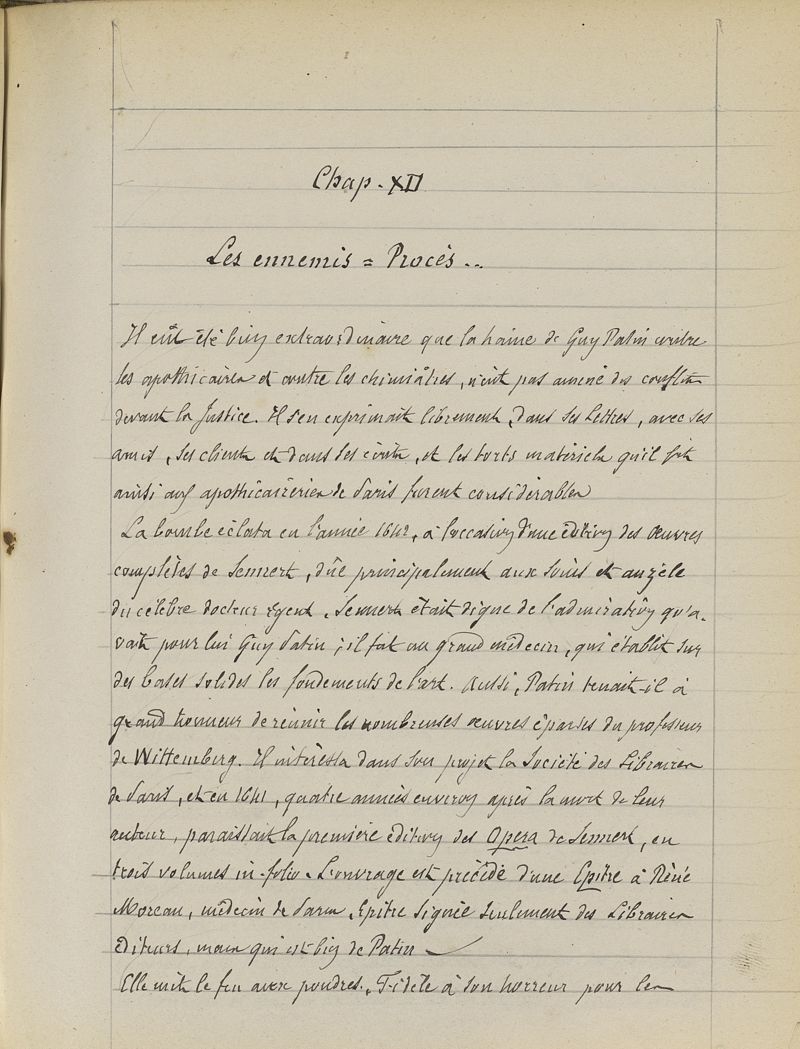 Chap. XII
Les ennemis = Procès..
Il eût été bien extraordinaire que la haine de Guy Patin contre
les apothicaires et contre les chimiâtres, n'eut pas amené des conflits
devant la Justice. Il s'en exprimait librement, dans ses Lettres, avec ses
amis, ses clients et dans les écrits, et les torts matériels qu'il fit
ainsi aux apothicaireries de Paris furent considérables
La bombe éclata en l'année 1642, à l'occasion d'une édition des œuvres
complètes de Sennert, dûe principalement aux soins et au zèle
du célèbre docteur régent. Sennert était digne de l'admiration qu'a-
vait pour lui Guy Patin ; il fut un grand médecin, qui établit sur
des bases solides les fondements de l'art. Aussi, Patin tenait-il à
grand honneur de réunir les nombreuses œuvres éparses du professeur
de Wittemberg. Il intéressa dans son projet la Société des Libraires
de Paris, et en 1641, quatre années environ après la mort de leur
auteur, paraissait la première édition des Opera de Sennert, en
trois volumes in-folio. L'ouvrage est précédé d'une Epitre à René
Moreau, médecin de Paris, Epitre signée seulement des Libraires
éditeurs, mais qui est bien de Patin
Elle mit le feu aux poudres. Fidèle à son horreur pour les